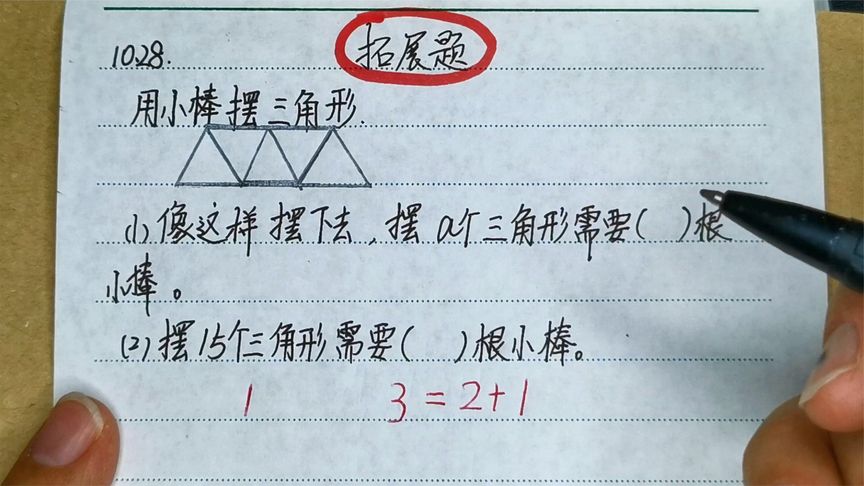 10.28. 拓展题
用小棒摆三角形.
(1)像这样摆下去,摆a个三角形需要( )根
小棒。
(2)摆15个三角形需要( )根小棒。
1 3=2+1